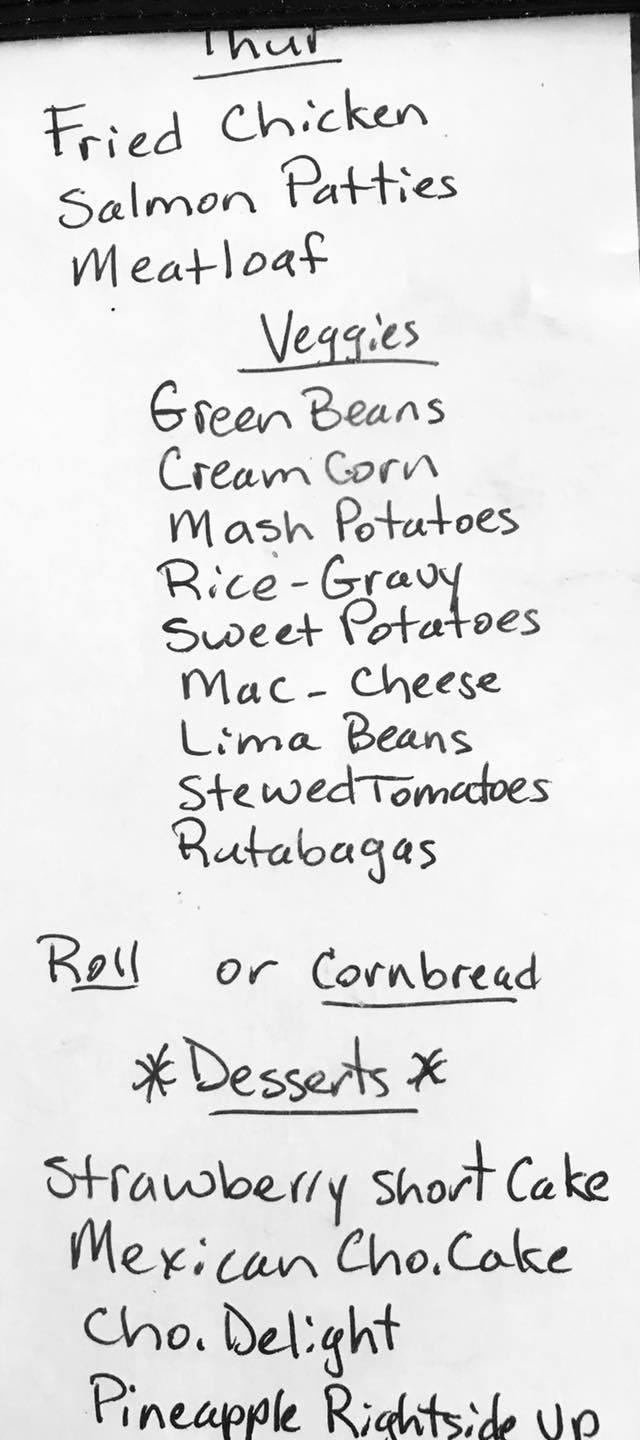 Thur
Fried Chicken
Salmon Patties
Meatloaf
Veggies
Green Beans
Cream Corn
Mash Potatoes
Rice - Gravy
Sweet Potatoes
Mac - Cheese
Lima Beans
Stewed Tomatoes
Rutabagas
Roll or Cornbread
*Desserts*
Strawberry Short Cake
Mexican Cho. Cake
Cho. Delight
Pineapple Rightside Up